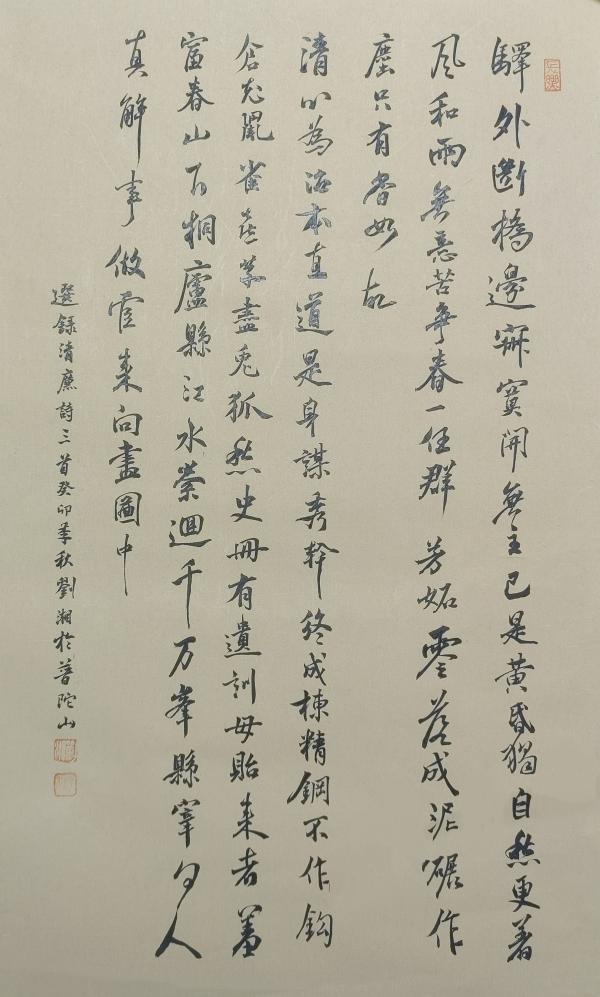 驛外斷橋邊寂寞開無主已是黃昏獨自愁更著
風和雨無意苦爭春一任群芳妬零落成泥碾作
塵只有香如故
清心為治本直道是身謀秀幹終成棟精鋼不作鈎
倉充鼠雀喜草盡兔狐愁史冊有遺訓毋貽来者羞
富春山下桐廬縣江水縈迴千万峯縣宰向人
真解事做官来向畫圖中
選錄清廉詩三首癸卯季秋劉湘於普陀山